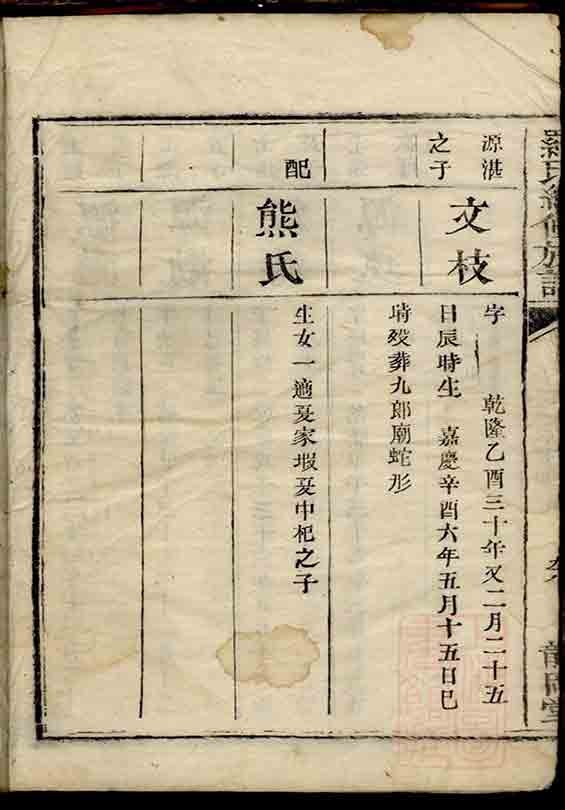 羅氏續修族譜
源湛
之子
文枝
字 乾隆乙酉三十年又二月二十五
日辰時生 嘉慶辛酉六年五月十五日巳
時歿葬九郎廟蛇形
配
熊氏
生女一適夏家塅夏中杞之子